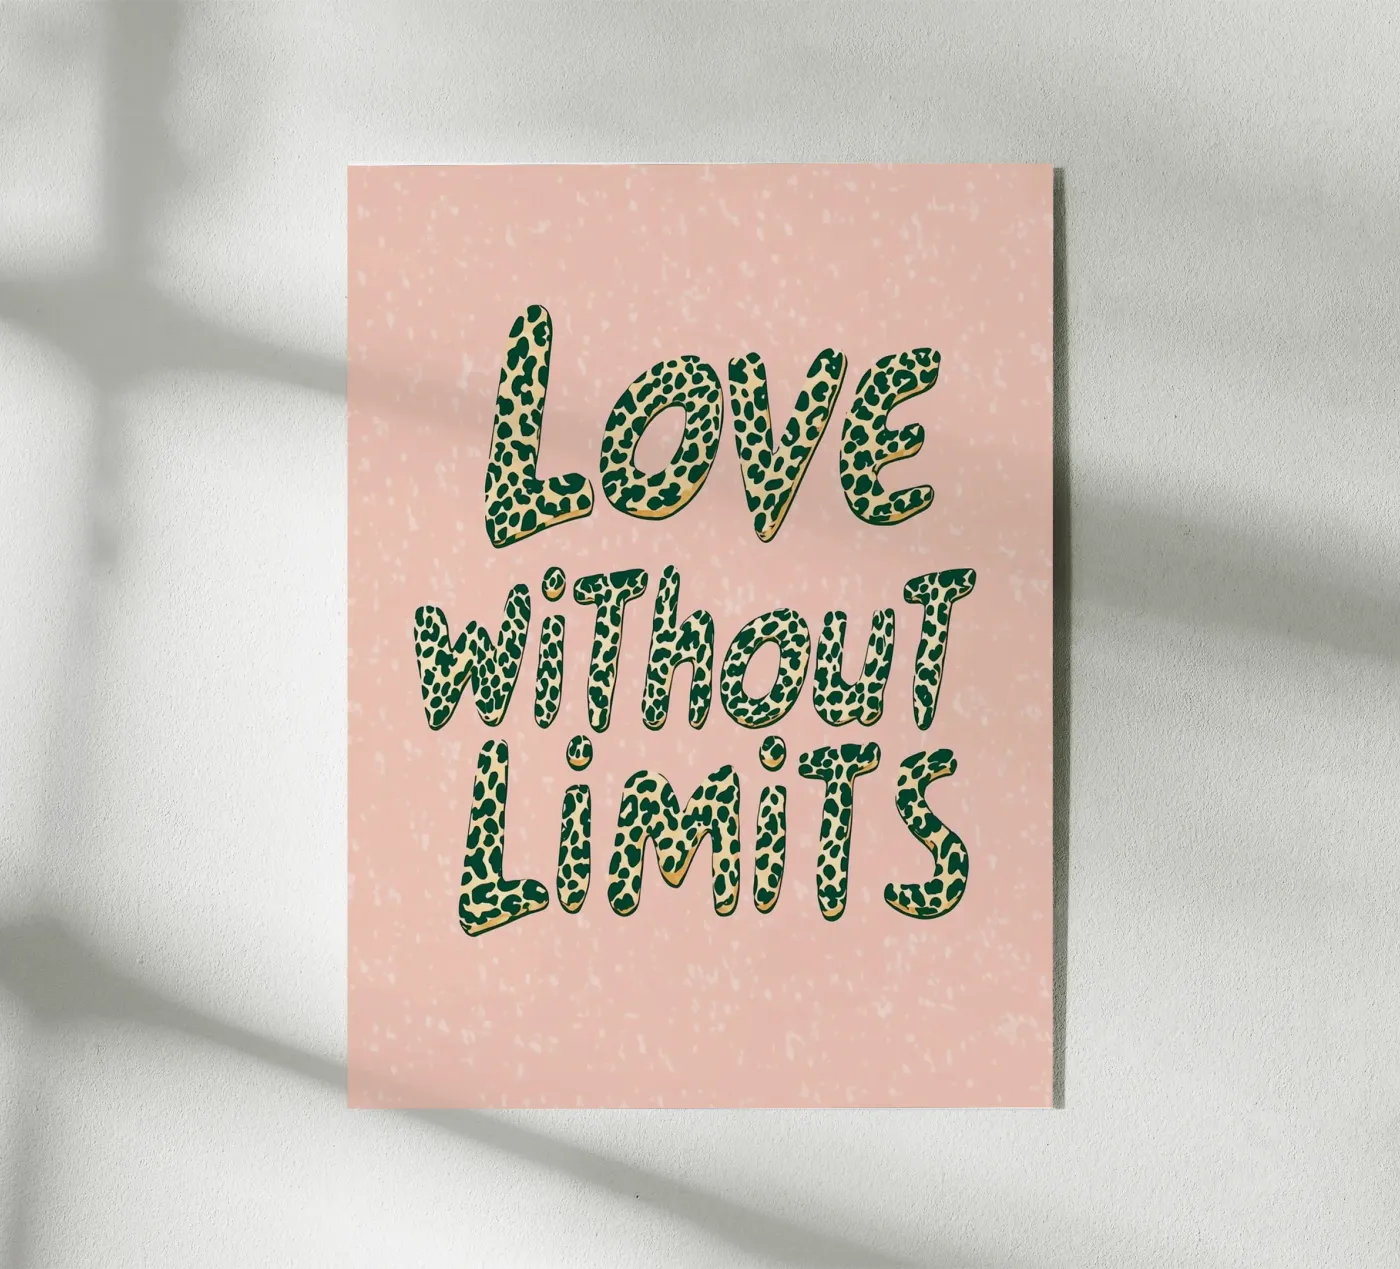 LOVE
WiThOUT
LiMiTS